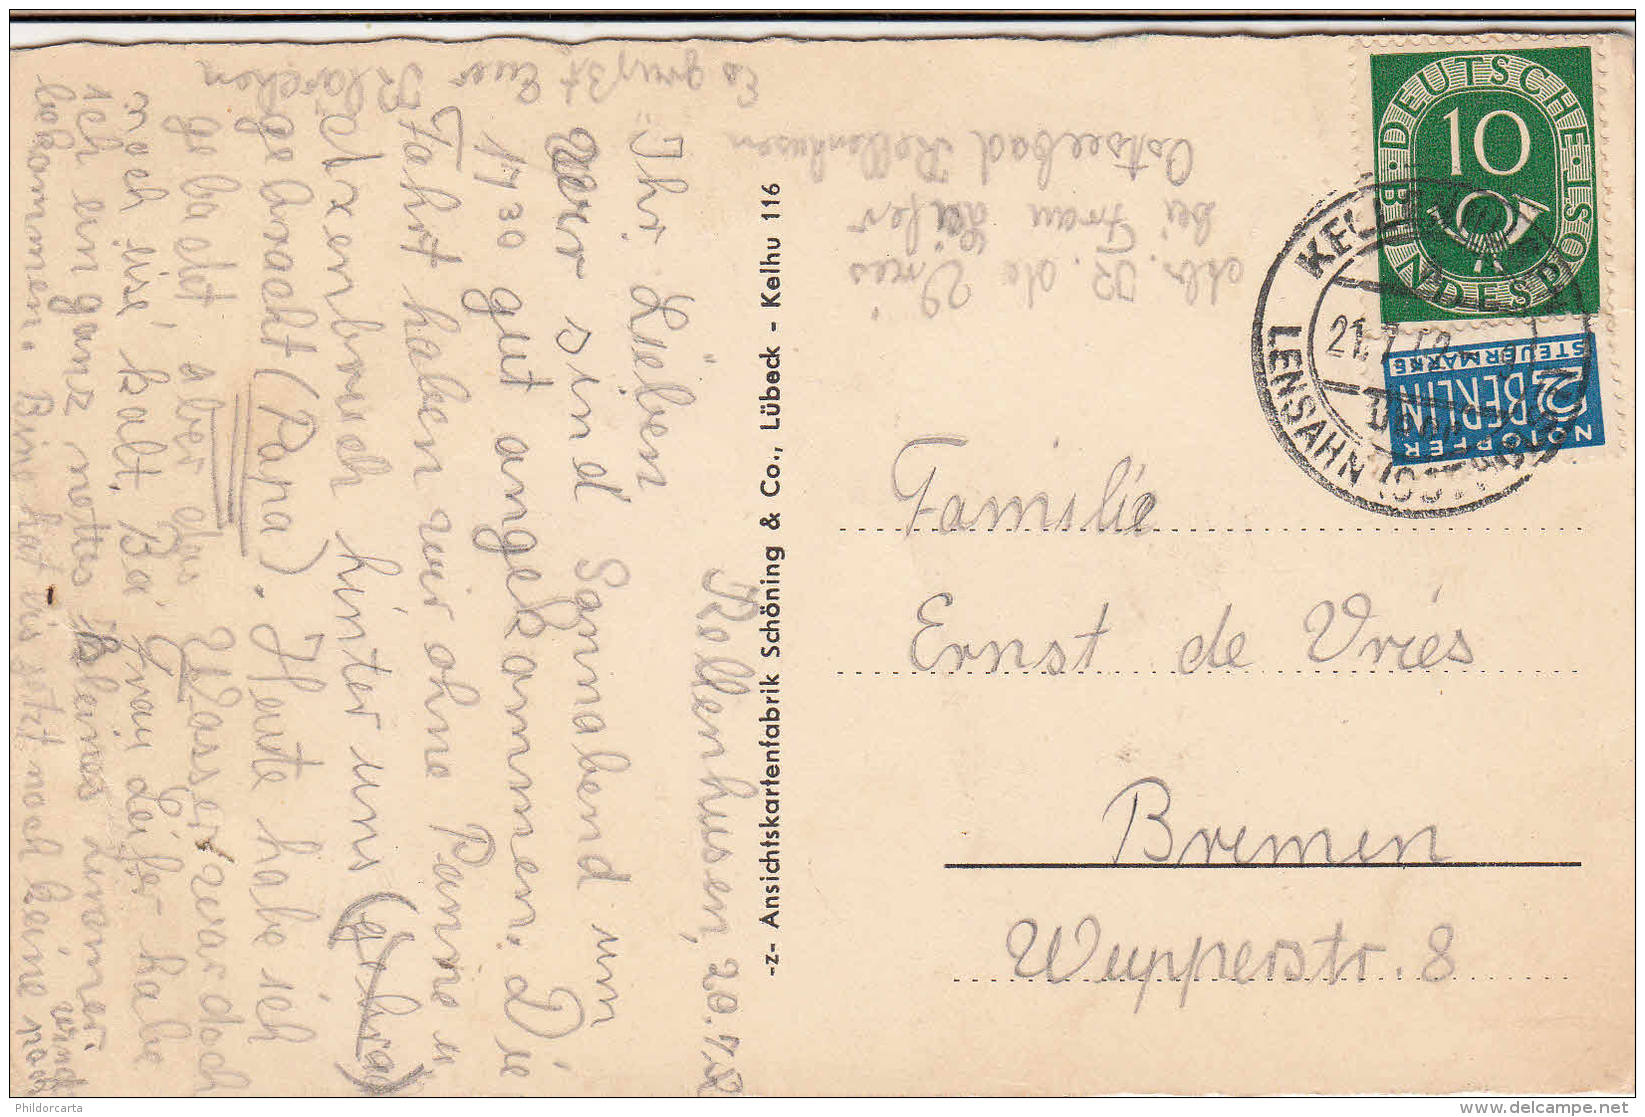 Kellenhusen, 20.7.52
Ihr Lieben
Wir sind Sonnabend um
17 30 gut angekommen. Die
Fahrt haben wir ohne Panne u
Axenbruch hinter uns (gebra)
gebracht (Papa). Heute habe ich
gebadet, aber das Wasser war doch
noch eise kalt. Bei Frau Leifer habe
ich ein ganz nettes kleines Zimmer
bekommen. Bine hat bis jetzt noch keine
Es grüßt Euer
Klärchen
Abs. K. de Vries
bei Frau Leifer
Ostseebad Kellenhusen
-z- Ansichtskartenfabrik Schöning & Co., Lübeck - Kelhu 116
DEUTSCHE BUNDESPOST
10
NOTOPFER
2 BERLIN
STEUERMARKE
KELLENHUSEN
LENSAHN (OSTHOLST)
21.7.52
Familie
Ernst de Vries
Bremen
Wupperstr. 8
Phildorcarta
delcampe.net